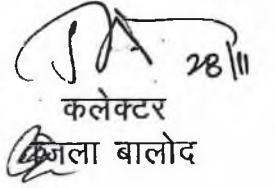 28/11
कलेक्टर
जिला बालोद